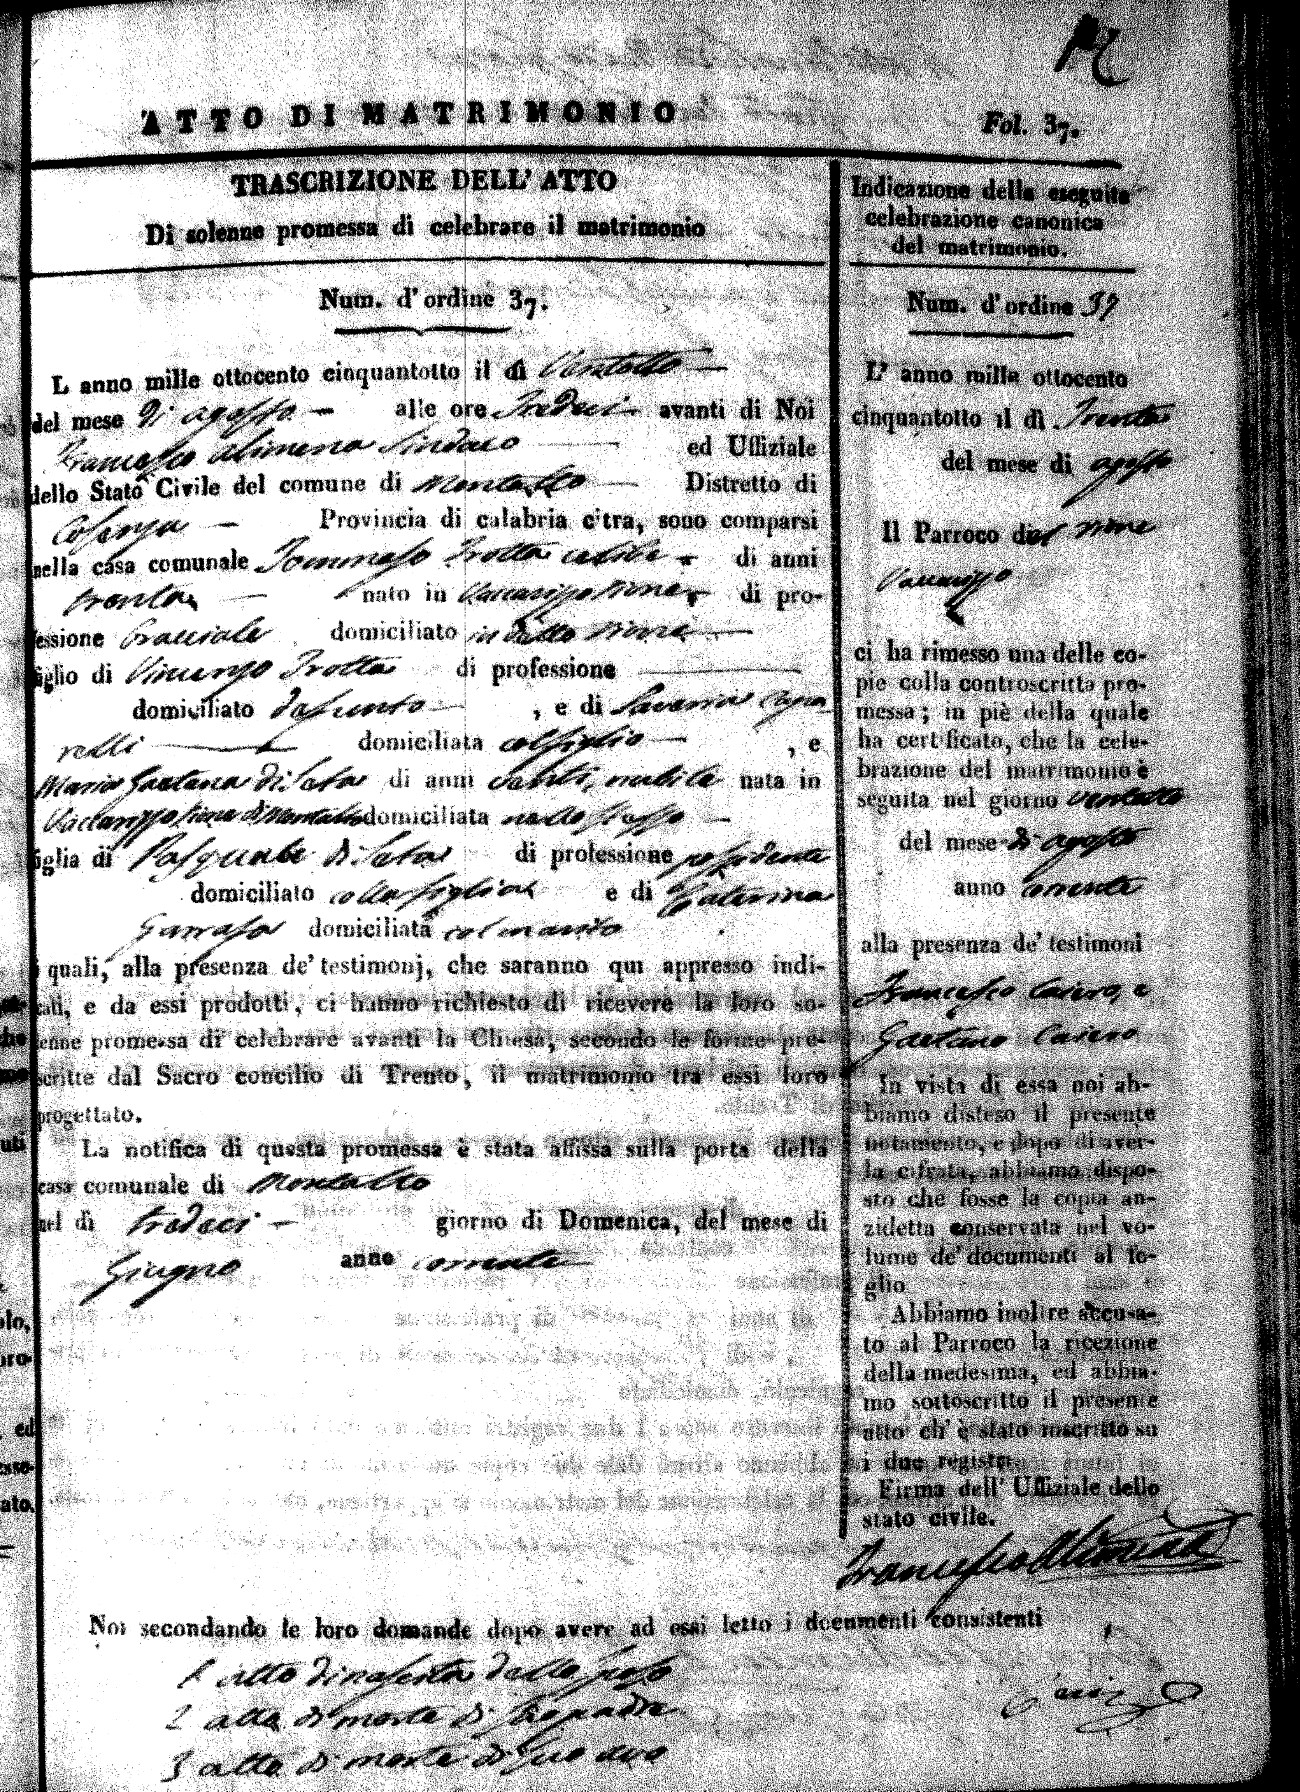 ATTO DI MATRIMONIO
Fol. 37.
TRASCRIZIONE DELL' ATTO
Di solenne promessa di celebrare il matrimonio
Num. d' ordine 37.
L anno mille ottocento cinquantotto il dì Ventotto
del mese di agosto alle ore Tredeci avanti di Noi
Francesco Alimena Sindaco ed Uffiziale
dello Stato Civile del comune di Montalto Distretto di
Cosenza Provincia di calabria citra, sono comparsi
nella casa comunale Tommaso Trotta celibe di anni
trenta nato in Vaccarizzo Rione di pro-
fessione Bracciale domiciliato in detto Rione
figlio di Vincenzo Trotta di professione
domiciliato defunto , e di Saveria Capo
relli domiciliata col figlio , e
Maria Gaetana di Seta di anni venti, nubile nata in
Vaccarizzo Rione di Montalto domiciliata nello stesso
figlia di Pasquale di Seta di professione possidente
domiciliato colla figlia e di Caterina
Garrafa domiciliata col marito
i quali, alla presenza de' testimonj, che saranno qui appresso indi-
cati, e da essi prodotti, ci hanno richiesto di ricevere la loro so-
lenne promessa di celebrare avanti la Chiesa, secondo le forme pre-
scritte dal Sacro concilio di Trento, il matrimonio tra essi loro
progettato.
La notifica di questa promessa è stata affissa sulla porta della
casa comunale di Montalto
nel dì tredeci giorno di Domenica, del mese di
Giugno anno corrente
Indicazione della eseguita
celebrazione canonica
del matrimonio.
Num. d' ordine 37
L' anno mille ottocento
cinquantotto il dì Trenta
del mese di agosto
Il Parroco del Rione
Vaccarizzo
ci ha rimesso una delle co-
pie colla controscritta pro-
messa; in piè della quale
ha certificato, che la cele-
brazione del matrimonio è
seguita nel giorno ventotto
del mese di agosto
anno corrente
alla presenza de' testimoni
Francesco Cairo, e
Gaetano Cairo
In vista di essa noi ab-
biamo disteso il presente
notamento, e dopo di aver-
la cifrata, abbiamo dispo-
sto che fosse la copia an-
zidetta conservata nel vo-
lume de' documenti al fo-
glio
Abbiamo inoltre accusa-
to al Parroco la ricezione
della medesima, ed abbia-
mo sottoscritto il presente
atto ch' è stato inscritto su
i due registri.
Firma dell' Uffiziale dello
stato civile.
Francesco Alimena
Noi secondando le loro domande dopo avere ad essi letto i documenti consistenti
1 atto di nascita dello sposo
2 atto di morte di suo padre
3 atto di morte di suo avo